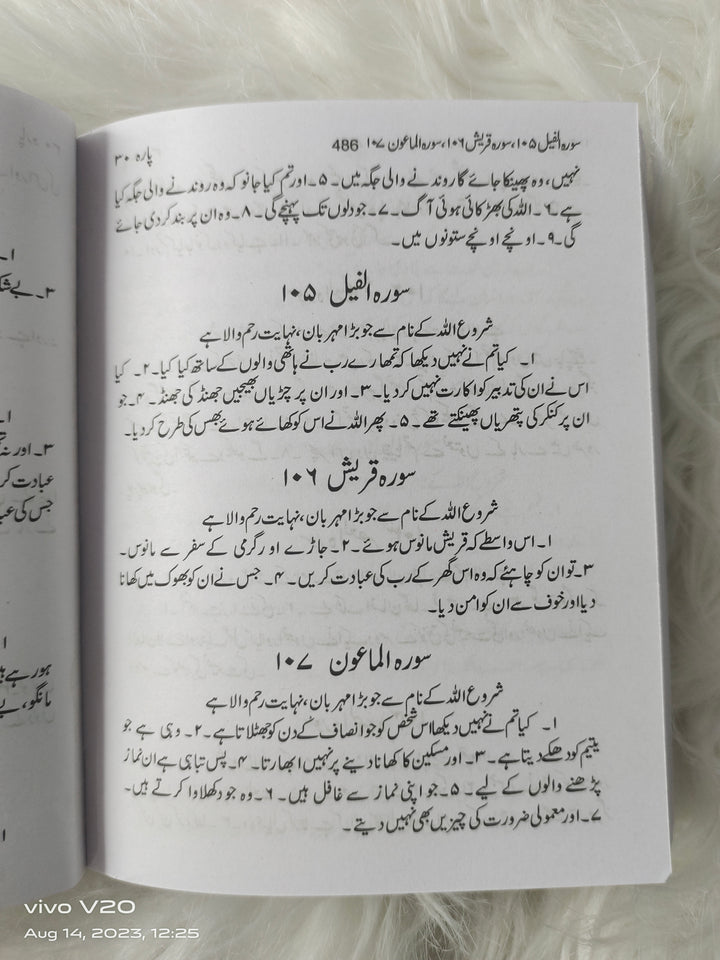 سورہ الفیل ۱۰۵، سورہ قریش ۱۰۶، سورہ الماعون ۱۰۷ 486 پارہ ۳۰
نہیں، وہ پھینکا جائے گا روندنے والی جگہ میں۔ ۵۔ اور تم کیا جانو کہ وہ روندنے والی جگہ کیا
ہے۔ ۶۔ اللہ کی بھڑکائی ہوئی آگ۔ ۷۔ جو دلوں تک پہنچے گی۔ ۸۔ وہ ان پر بند کر دی جائے
گی۔ ۹۔ اونچے اونچے ستونوں میں۔
سورہ الفیل ۱۰۵
شروع اللہ کے نام سے جو بڑا مہربان، نہایت رحم والا ہے
۱۔ کیا تم نے نہیں دیکھا کہ تمھارے رب نے ہاتھی والوں کے ساتھ کیا کیا۔ ۲۔ کیا
اس نے ان کی تدبیر کو اکارت نہیں کر دیا۔ ۳۔ اور ان پر چڑیاں بھیجیں جھنڈ کی جھنڈ۔ ۴۔ جو
ان پر کنکر کی پتھریاں پھینکتے تھے۔ ۵۔ پھر اللہ نے اس کو کھائے ہوئے بھس کی طرح کر دیا۔
سورہ قریش ۱۰۶
شروع اللہ کے نام سے جو بڑا مہربان، نہایت رحم والا ہے
۱۔ اس واسطے کہ قریش مانوس ہوئے۔ ۲۔ جاڑے اور گرمی کے سفر سے مانوس۔
۳۔ تو ان کو چاہئے کہ وہ اس گھر کے رب کی عبادت کریں۔ ۴۔ جس نے ان کو بھوک میں کھانا
دیا اور خوف سے ان کو امن دیا۔
سورہ الماعون ۱۰۷
شروع اللہ کے نام سے جو بڑا مہربان، نہایت رحم والا ہے
۱۔ کیا تم نے نہیں دیکھا اس شخص کو جو انصاف کے دن کو جھٹلاتا ہے۔ ۲۔ وہی ہے جو
یتیم کو دھکے دیتا ہے۔ ۳۔ اور مسکین کا کھانا دینے پر نہیں ابھارتا۔ ۴۔ پس تباہی ہے ان نماز
پڑھنے والوں کے لیے۔ ۵۔ جو اپنی نماز سے غافل ہیں۔ ۶۔ وہ جو دکھلاوا کرتے ہیں۔
۷۔ اور معمولی ضرورت کی چیزیں بھی نہیں دیتے۔
۳۔ اور نہ
عبادت کر
جس کی عبا
ہور ہے ہیں
مانگو، بے
vivo V20
Aug 14, 2023, 12:25